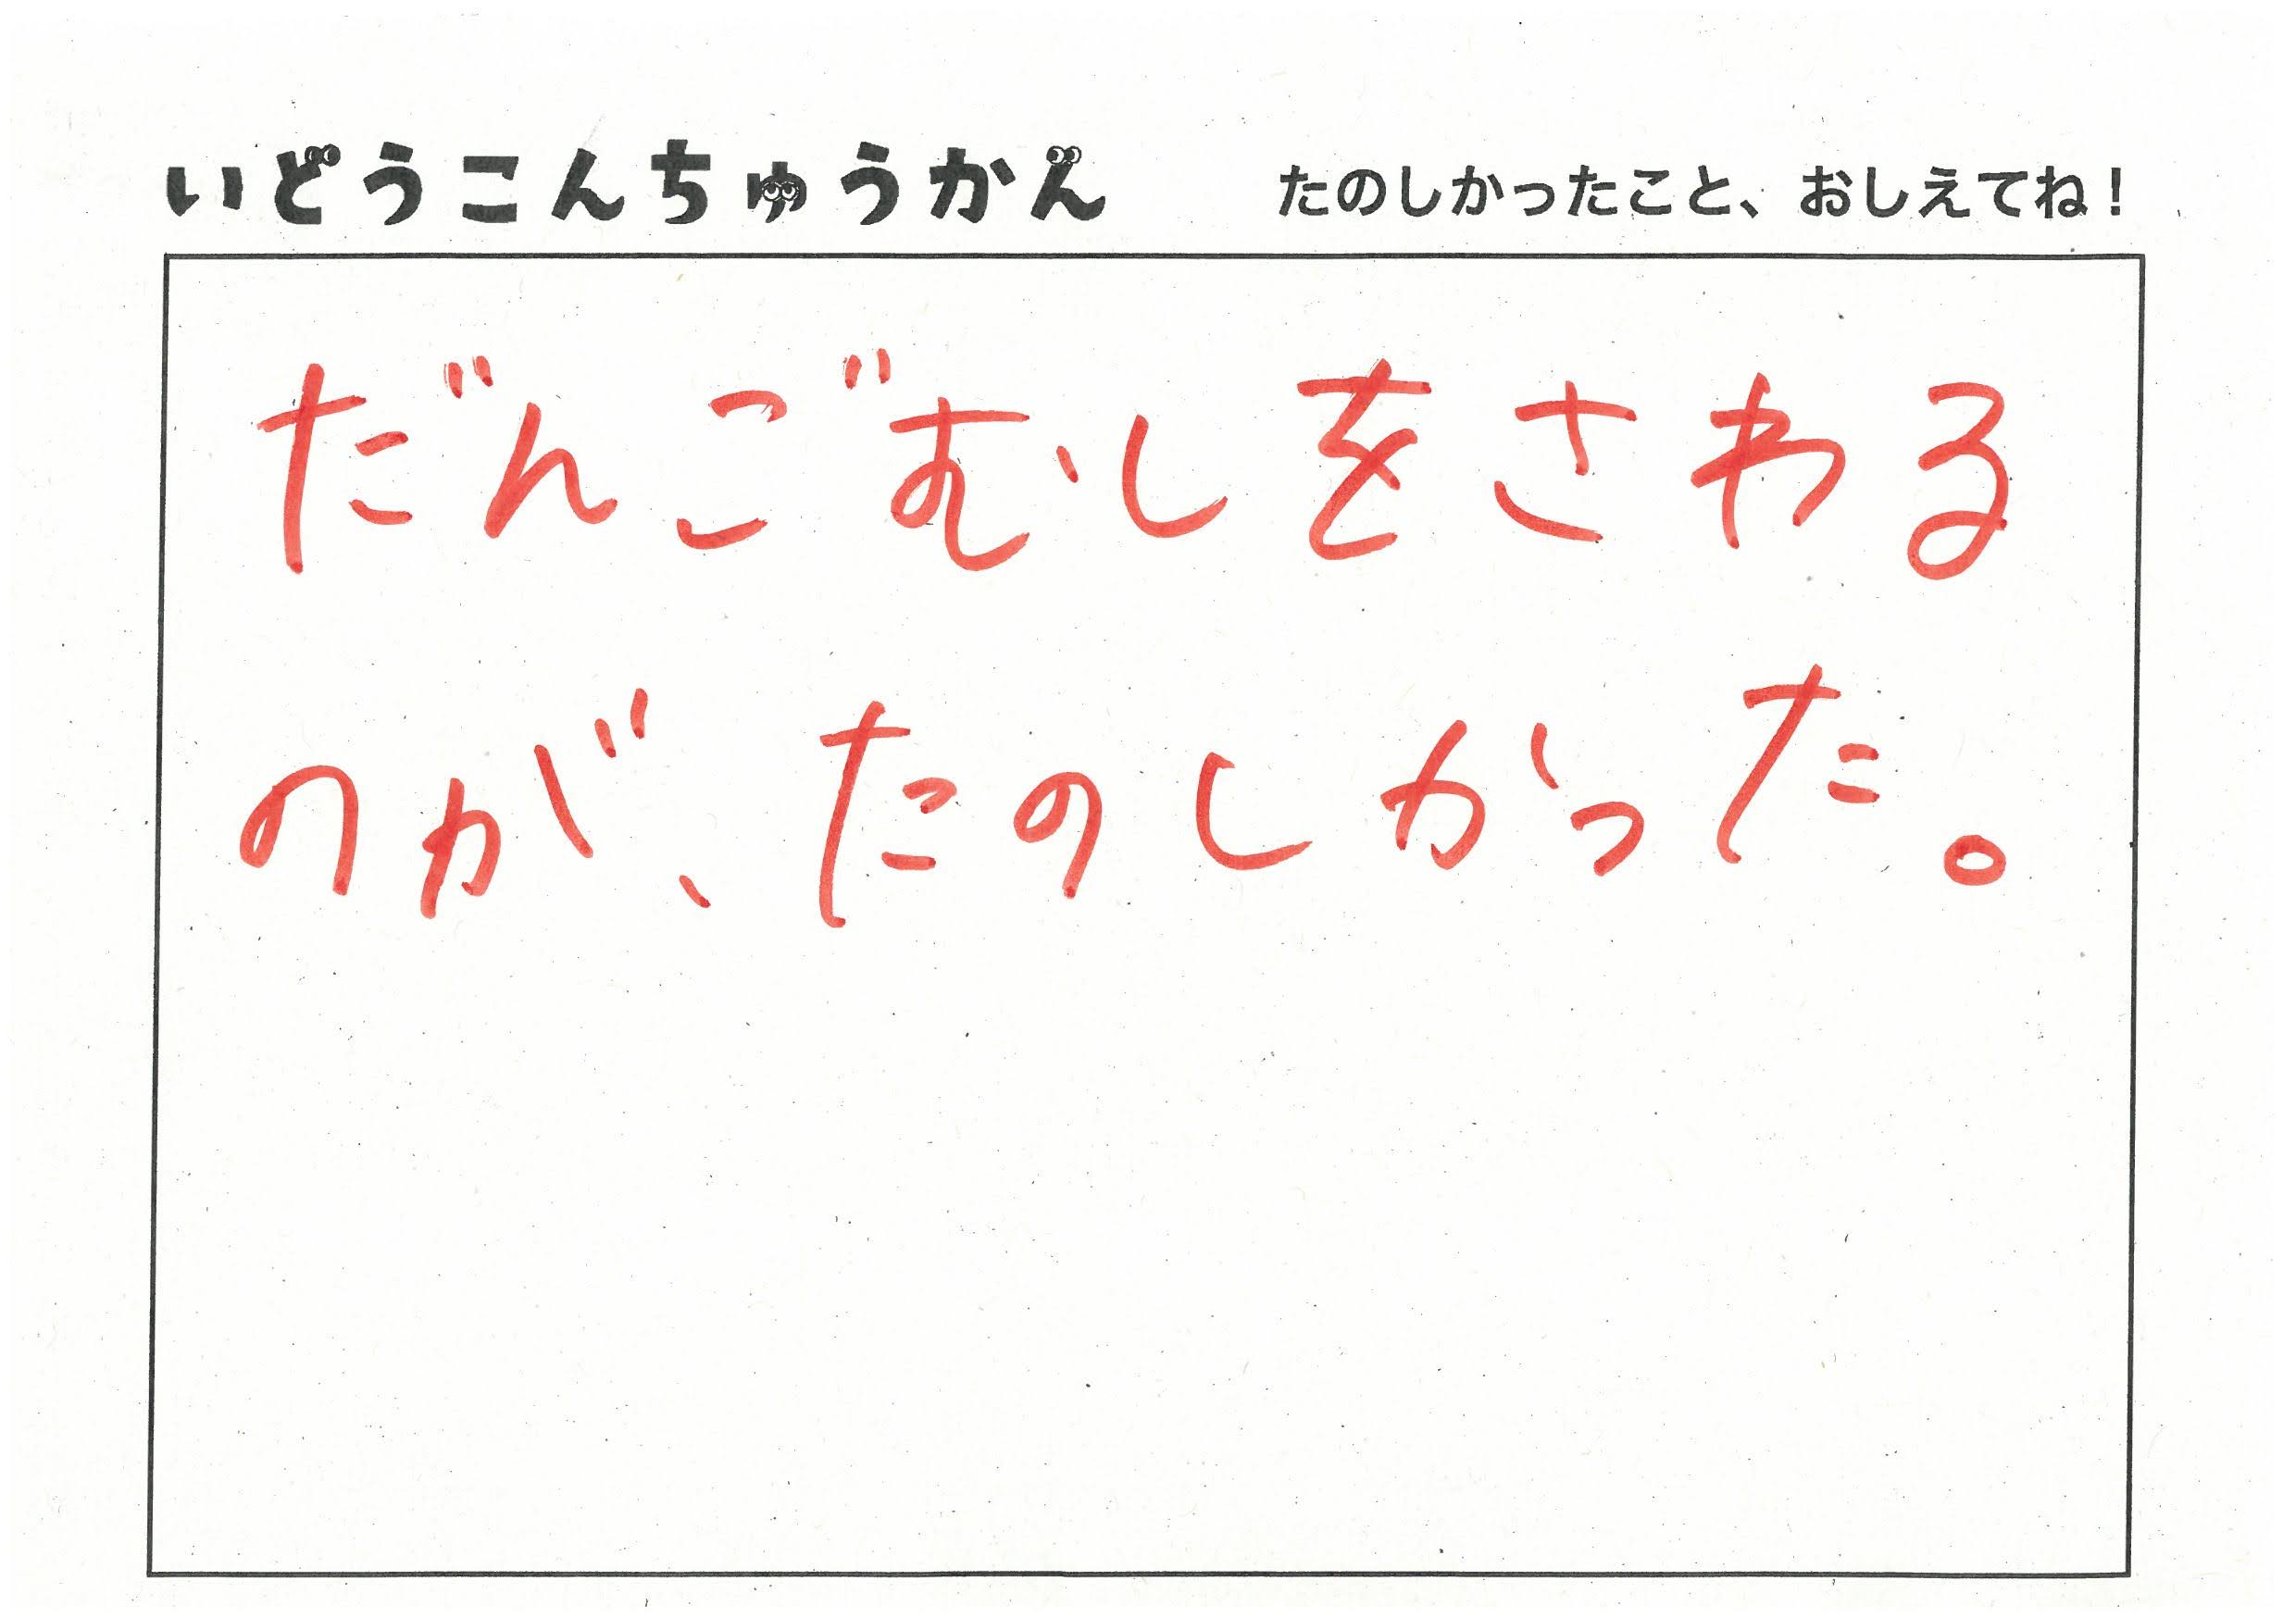 いどうこんちゅうかん たのしかったこと、おしえてね！
だんごむしをさわる
のが、たのしかった。